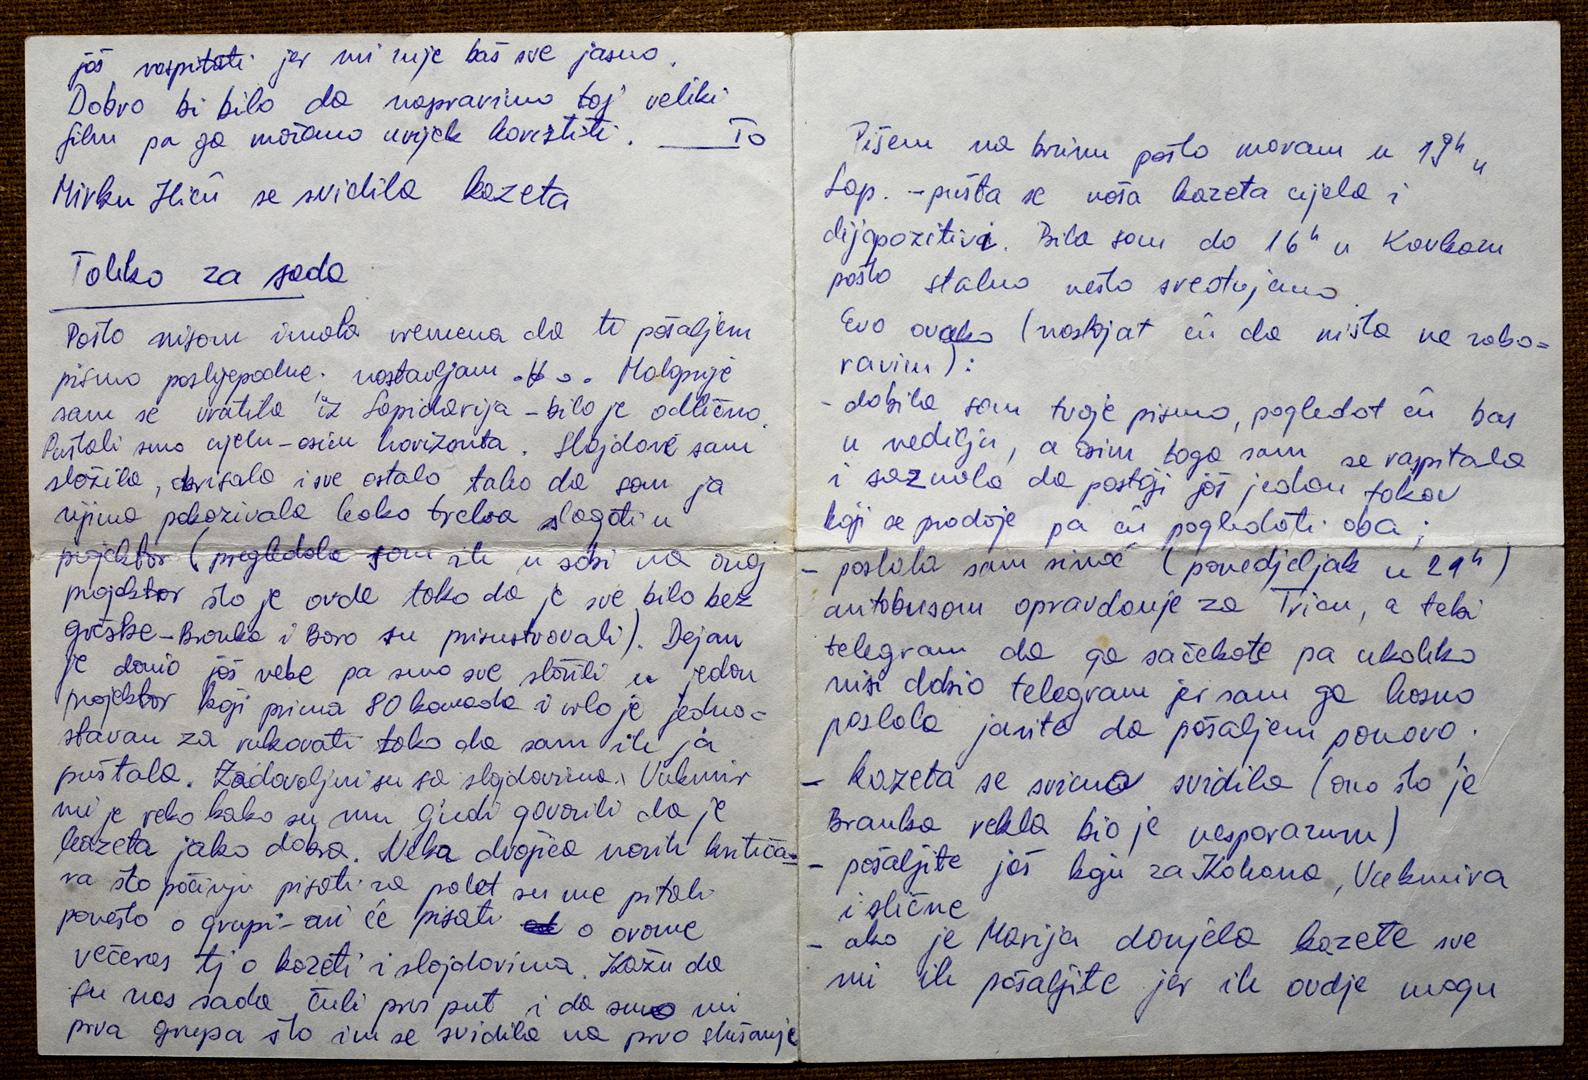 još raspitati jer mi nije baš sve jasno.
Dobro bi bilo da napravimo taj veliki
film pa ga možemo uvijek koristiti. To
Mirku Iliću se svidila kazeta
Toliko za sada
Pošto nisam imala vremena da ti pošaljem
pismo poslijepodne nastavljam... Maloprije
sam se vratila iz Lapidarija - bilo je odlično.
Puštali smo cijelu - osim horizonta. Slajdove sam
složila, obrisala i sve ostalo tako da sam ja
njima pokazivala kako treba slagati u
projektor (pregledala sam ih u sobi na onaj
projektor što je ovde tako da je sve bilo bez
greške - Branka i Boro su prisustvovali). Dejan
je donio još nebe pa smo sve složili u jedan
projektor koji prima 80 komada i vrlo je jedno=
stavan za rukovati tako da sam ih ja
puštala. Zadovoljni su sa slajdovima. Vukmir
mi je reko kako su mu ljudi govorili da je
kazeta jako dobra. Neka dvojica novih kritiča=
ra što počinju pisati za polet su me pitali
povešto o grupi - oni će pisati o ovome
večeras tj o kazeti i slajdovima. Kažu da
su nas sada čuli prvi put i da smo mi
prva grupa što im se svidila na prvo slušanje
Pišem na brzinu pošto moram u 19h u
Lap. - pušta se naša kazeta cijela i
dijapozitivi. Bila sam do 16h u Kavkazu
pošto stalno nešto sređujemo.
Evo ovako (nastojat ću da ništa ne zabo=
ravim):
- dobila sam tvoje pismo, pogledat ću baš
u nedilju, a osim toga sam se raspitala
i saznala da postoji još jedan takav
koji se prodaje pa ću pogledati oba;
- poslala sam sinoć (ponedjeljak u 21h)
autobusom opravdanje za Tricu, a tebi
telegram da ga sačekate pa ukoliko
nisi dobio telegram jer sam ga kasno
poslala javite da pošaljem ponovo.
- kazeta se svima svidila (ono što je
Branka rekla bio je nesporazum)
- pošaljite još koju za Kokana, Vukmira
i slične
- ako je Marija donjela kazete sve
mi ih pošaljite jer ih ovdje mogu